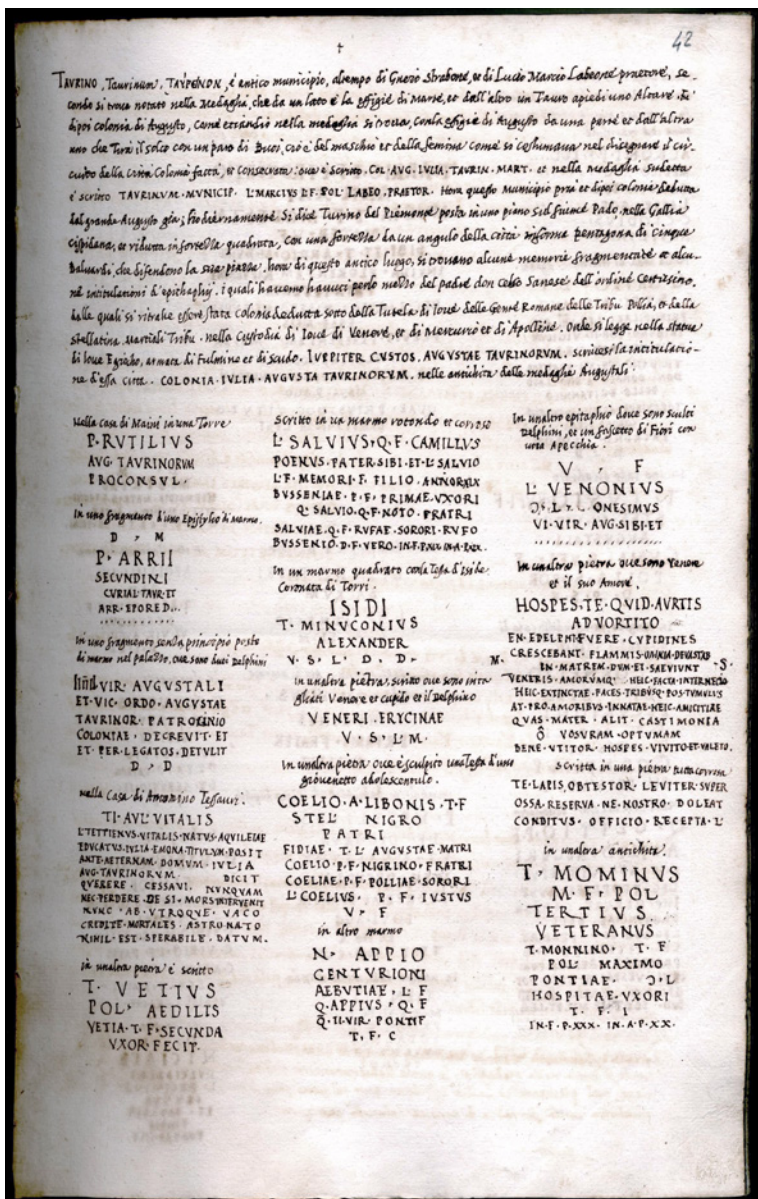 42
TAVRINO, Taurinum, ΤΑΥΡΕΝΟΝ, è antico municipio, al tempo di Gneio Strabone, et di Lucio Marcio Labeone praetore, se-
condo si troua notato nella Medaglia, che da un lato è la effigie di Marte, et dall'altro un Tauro apiedi uno Altare. Fu
dipoi colonia di Augusto, come etiandio nella medaglia si troua, con la effigie di Augusto da una parte et dall'altra
uno che tira il solco con un paro di Buoi, cio è del maschio et della femina come si costumaua nel disegnare il cir-
cuito della Città Colonie fatta, et consecrata: oue è scritto. COL. AVG. IVLIA. TAVRIN. MART. et nella medaglia sudetta
è scritto TAVRINVM. MVNICIP. L. MARCIVS DF. POL. LABEO. PRAETOR. Hora questo Municipio pria et dipoi colonia deduta
dal grande Augusto già; hodiernamente Si dice Turino del Piemonte posta in uno piano sul fiume Pado, nella Gallia
cispadana, et ridutta in fortezza quadrata, con una fortezza da un angulo della città in forma pentagona di cinque
Baluardi, che difendono la piazza. hora di questo antico luogo, si trouano alcune memorie fragmentate et alcu-
ne intitulationi d'epithaphij. i quali hauemo hauuti per lo mezzo del padre don Celso Sanese dell'ordine
dalle quali si ritrahe essere stata Colonia deducta sotto della Tutela di Ioue delle Gente Romane delle Tribu Pollia, et dalla
Stellatina Martiali Tribu. nella Custodia di Ioue di Venere, et di Mercurio et di Apolline. Onde si legge nella statua
di Ioue Egiocho, armata di Fulmine et di scudo. IVPITER CVSTOS. AVGVSTAE TAVRINORVM. scriuesi la intitulatio-
ne d'essa citta. COLONIA. IVLIA. AVGVSTA TAVRINORVM. nelle antichita delle medaglie Augustali.
Nella Casa di Maini in una Torre
P. RVTILIVS
AVG. TAVRINORVM
PROCONSVL.
In uno fragmento d'uno Epistylio di Marmo.
D, M
P. ARRII
SECVNDINI
CVRIAL TAVR. ET
ARR. EPORED..
In uno fragmento senza principio posto
di marmo nel palazzo, oue sono duei Delphini
IIIIII VIR AVGVSTALI
ET. VIC. ORDO. AVGVSTAE
TAVRINOR. PATROCINIO
COLONIAE. DECREVIT. ET
ET. PER. LEGATOS. DETVLIT
D, D
nella Casa di Antonino Tessauri.
TI. AVL. VITALIS
L. TETTIENVS. VITALIS. NATVS. AQVILEIAE
EDVCATVS. IVLIA. EMONA. TITVLVM. POSIT
ANTE. AETERNAM. DOMVM. IVLIA
AVG. TAVRINORVM. DICIT
QVERERE. CESSAVI. NVNQVAM
NEC. PERDERE. DE SI. MORS INTERVENIT
NVNC. AB. VTROQVE. VACO
CREDITE. MORTALES. ASTRO. NATO
NIHIL. EST. SPERABILE. DATVM.
in un altra pietra è scritto
T. VETIVS
POL. AEDILIS
VETIA. T. F. SECVNDA
VXOR. FECIT.
Scritto in un marmo rotondo et corroso
L. SALVIVS. Q. F. CAMILLVS
POENVS. PATER. SIBI. ET. L. SALVIO
L. F. MEMORI. F. FILIO. ANNOR XIX
BVSSENIAE. P. F. PRIMAE. VXORI
Q. SALVIO. Q. F. NOTO. FRATRI
SALVIAE. Q. F. RVFAE. SORORI. RVFO
BVSSENIO. D. F. VERO. IN. F. P. XXX. IN. A. P. XXX.
In un marmo quadrato con la Testa d'Iside
Coronata di Torri.
ISIDI
T. MINVCONIVS
ALEXANDER
V. S. L. D. D. M.
in un altra pietra, scritto oue sono inta
gliati Venere et Cupido et il Delphino
VENERI. ERYCINAE
V. S. L. M.
In un altra pietra oue è sculpito una Testa d'uno
giouenetto adolescentulo.
COELIO. A. LIBONIS. T. F
STEL NIGRO
PATRI
FIDIAE. T. L. AVGVSTAE. MATRI
COELIO. P. F. NIGRINO. FRATRI
COELIAE. P. F. POLLIAE. SORORI
L. COELIVS. P. F. IVSTVS
V. F
in altro marmo
N. APPIO
CENTVRIONI
ALBVTIAE. L. F
Q. APPIVS. Q. F
Q. II. VIR. PONTIF
T. F. C
In un altro epitaphio doue sono sculti
Delphini, et un fascetto di Fiori con
una Apecchia.
V, F
L. VENONIVS
Ɔ. L. L. ONESIMVS
VI. VIR. AVG. SIBI. ET
In un altra pietra oue sono Venere
et il suo Amore.
HOSPES. TE. QVID. AVRTIS
ADVORTITO
EN. EDELPHI. FVERE. CVPIDINES
CRESCEBANT. FLAMMIS. OMNIA. DEVASTAS
IN. MATREM. DVM. ET. SAEVIVNT S.
VENERIS. AMORVMQ. HEIC. FACTA. INTERNECIO
HEIC. EXTINCTAE. FACES. TRIBVSQ. POS. TVMVLIS
AT. PRO. AMORIBVS. INNATAE. HEIC. AMICITIAE
QVAS. MATER. ALIT. CASTIMONIA
Ô VOSVRAM. OPTVMAM
BENE. VTITOR. HOSPES. VIVITO ET VALETO.
Scritta in una pietra tutta corrosa
TE. LAPIS. OBTESTOR. LEVITER. SVPER
OSSA. RESERVA. NE. NOSTRO. DOLEAT
CONDITVS. OFFICIO. RECEPTA. L.
in un altra antichita.
T. MOMINVS
M. F. POL
TERTIVS
VETERANVS
T. MONNINO. T. F
POL MAXIMO
PONTIAE. Ɔ. L
HOSPITAE. VXORI
T. F. I
IN. F. P. XXX. IN. A. P. XX.